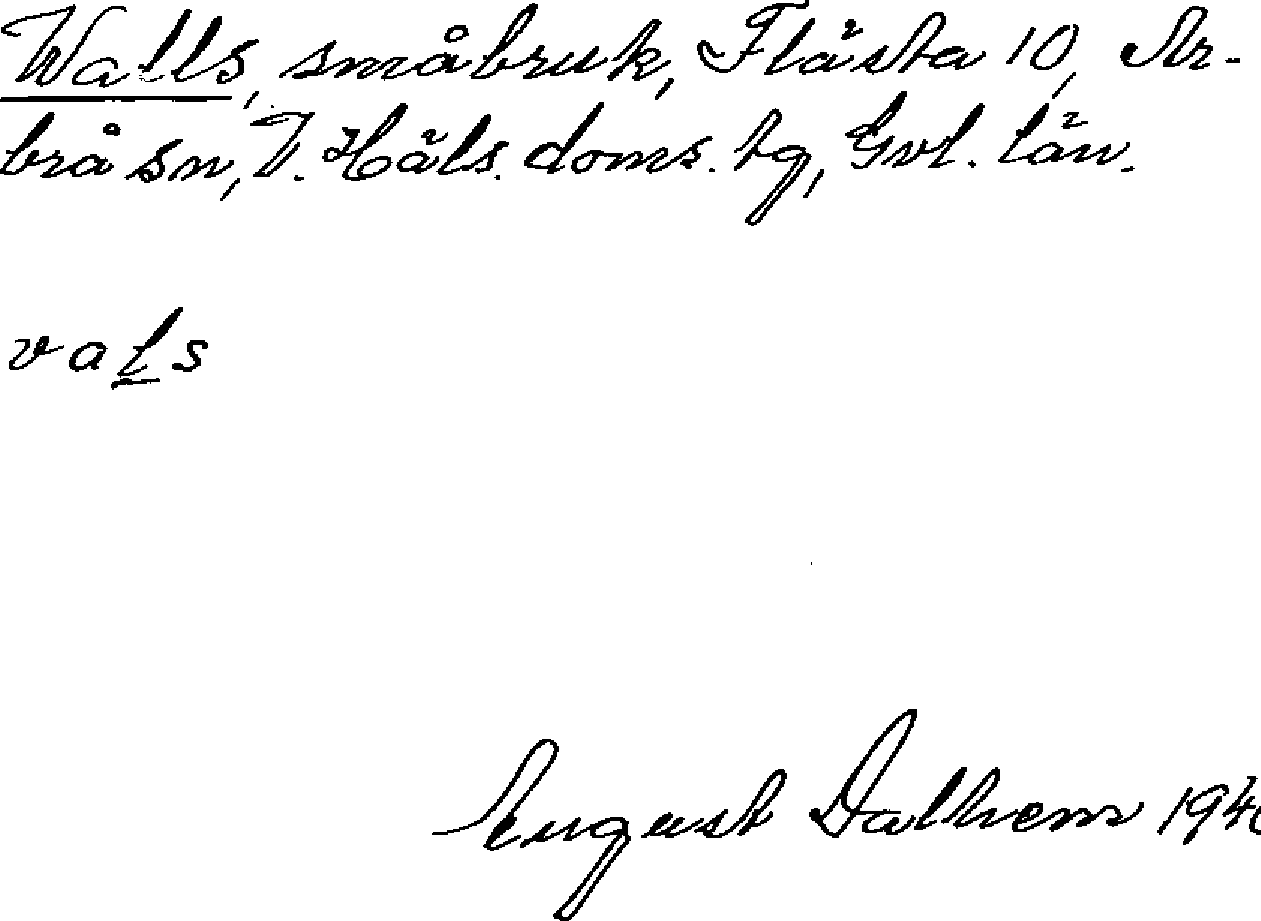 Walls, småbruk, Flästa 10, Ar-
brå sn, V. Häls. doms. tg, Gvl. län.
vals
August Dalhem